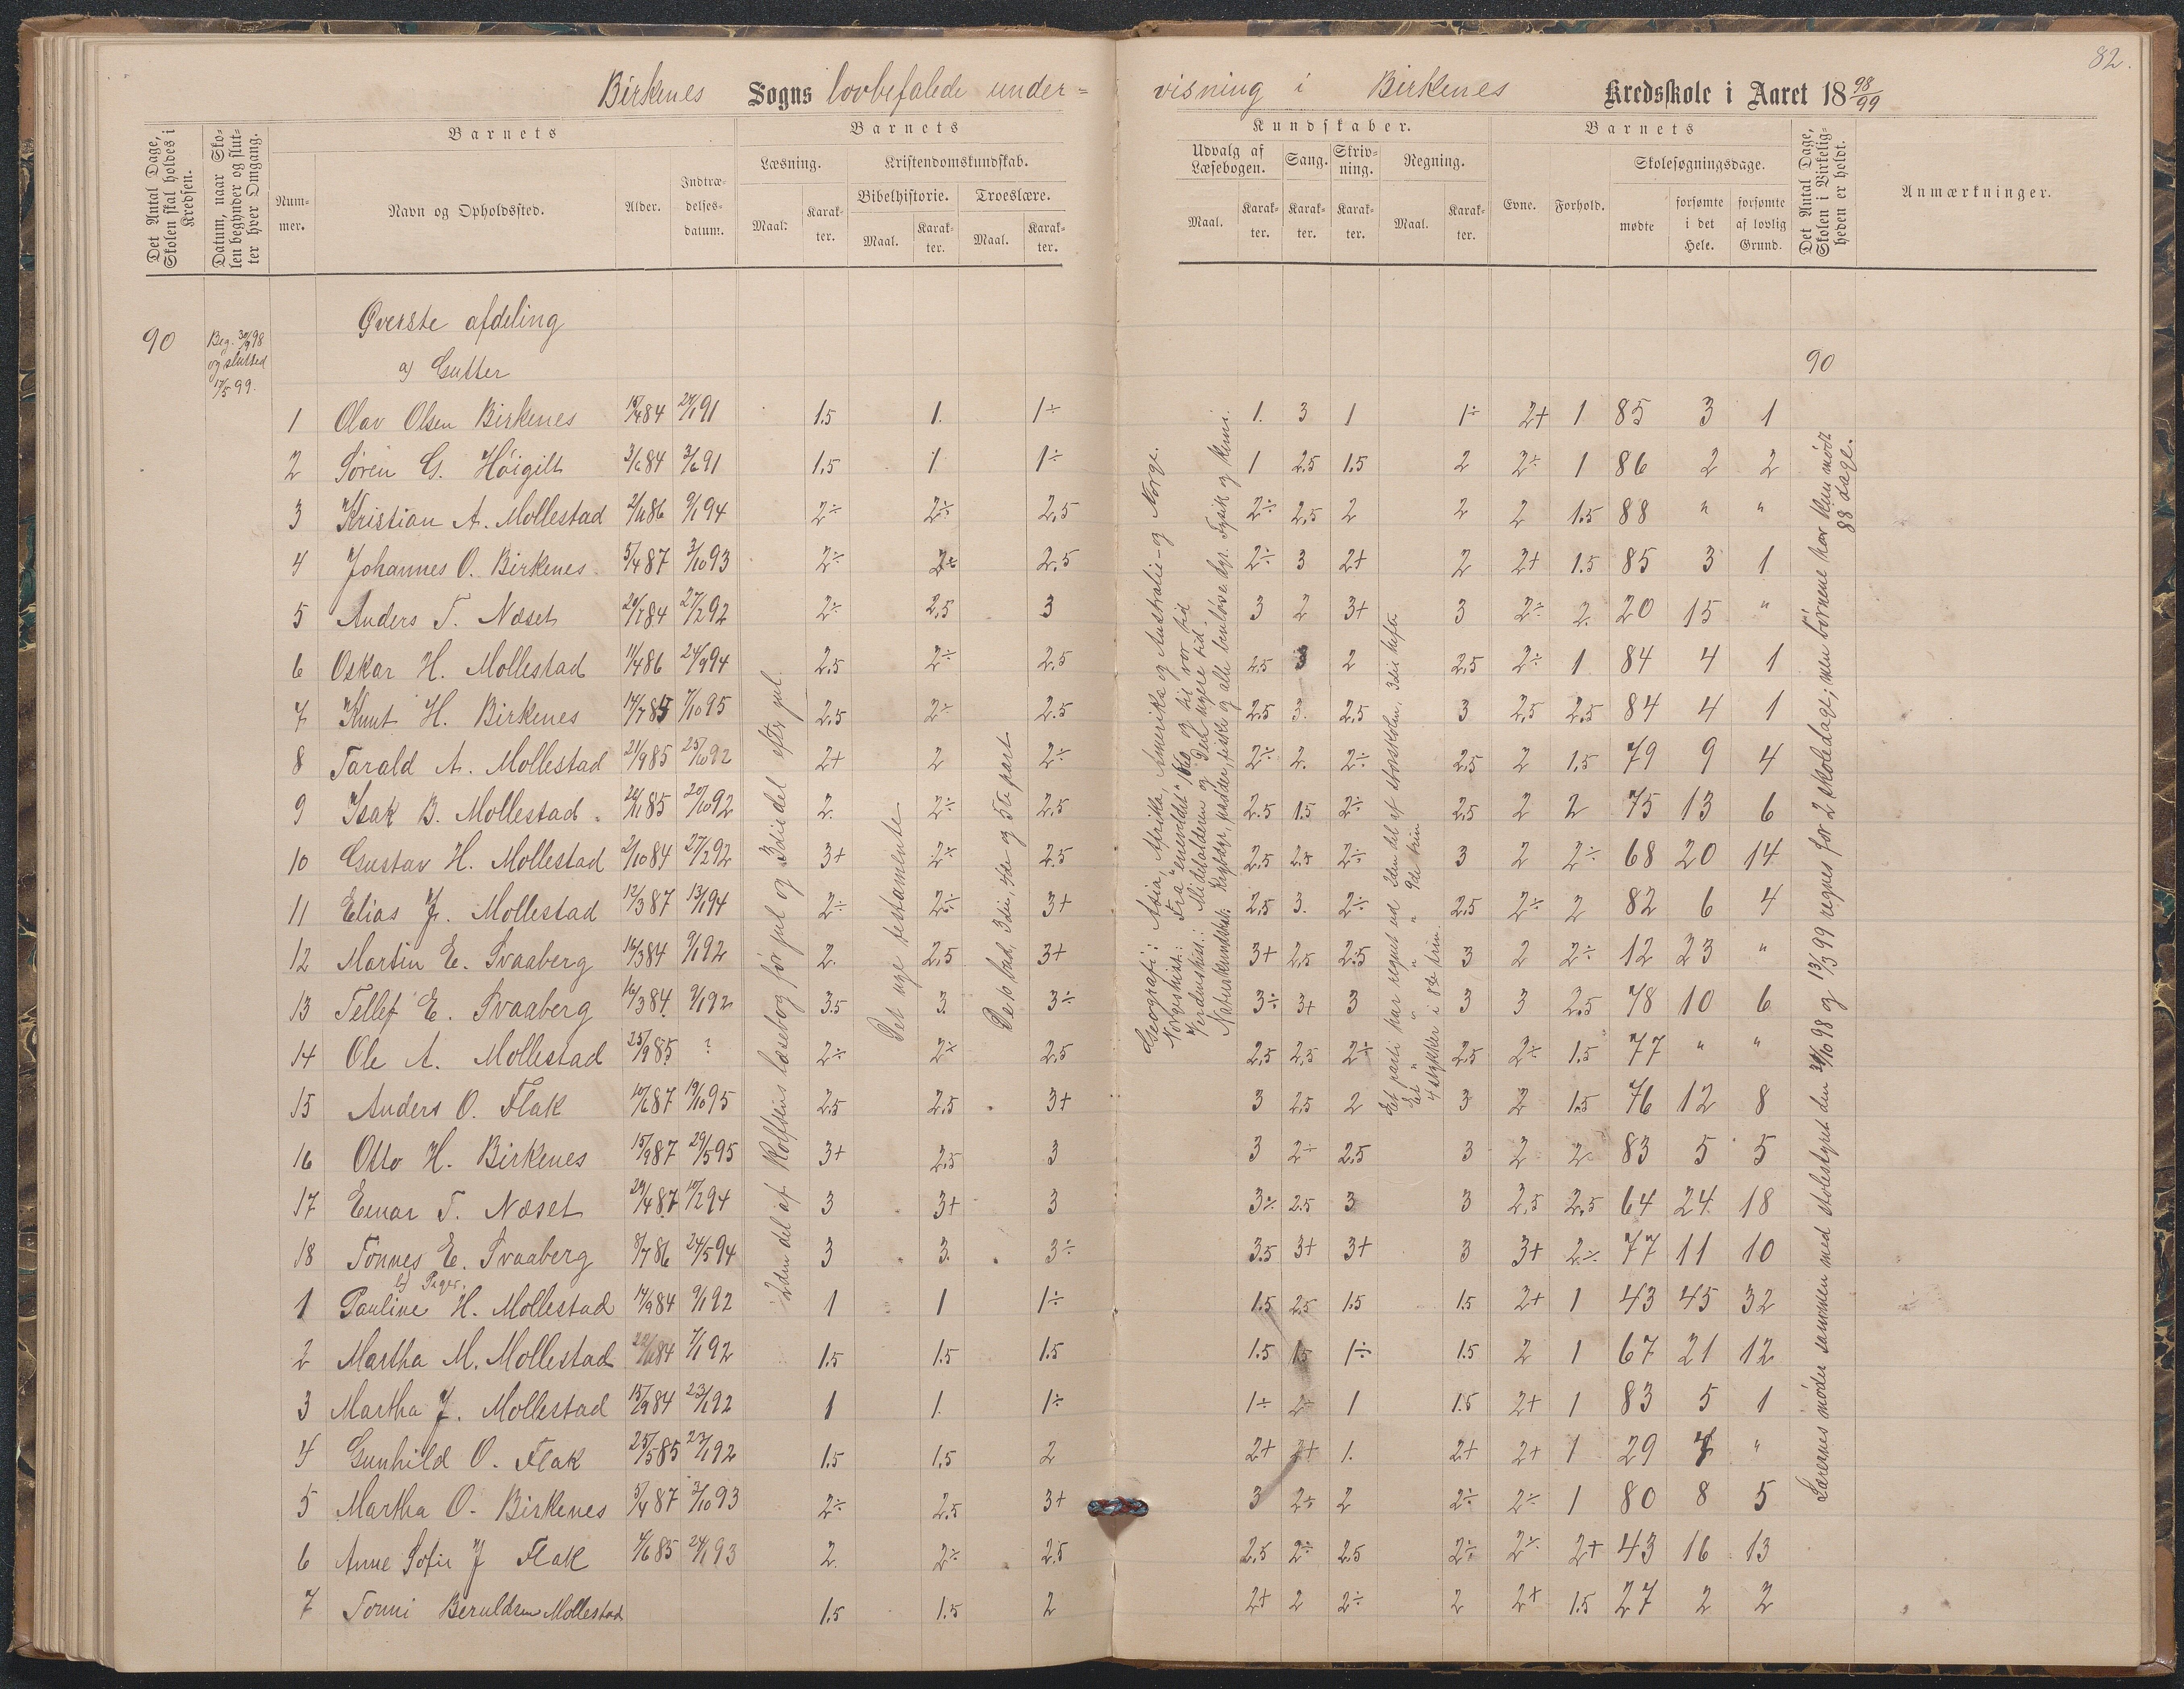 82.
Birkenes Sogns lovbefalede under=visning i Birkenes Kredsskole i Aaret 1898/99
Det Antal Dage, Skolen skal holdes i Kredsen.
Datum, naar Skolen begynder og slutter hver Omgang.
Barnets
Nummer.
Navn og Opholdssted.
Alder.
Indtrædelses-datum.
Barnets
Læsning.
Maal.
Karakter.
Kristendomskundskab.
Bibelhistorie.
Maal.
Karakter.
Troeslære.
Maal.
Karakter.
Kundskaber.
Udvalg af Læsebogen.
Maal.
Karakter.
Sang.
Karakter.
Skrivning.
Karakter.
Regning.
Maal.
Karakter.
Barnets
Evne.
Forhold.
Skolesøgningsdage.
mødte
forsømte i det Hele.
forsømte af lovlig Grund.
Det Antal Dage, Skolen i Virkeligheden er holdt.
Anmærkninger.
90
Beg. 30/9 98
og slutted
17/5 99.
Øverste afdeling
a) Gutter
90
1 Olav Olsen Birkenes 84 24/1 91 1.5 1. 1÷ 1. 3 1 1÷ 2+ 1 85 3 1
2 Søren G. Höigilt 3/6 84 3/6 91 1.5 1 1÷ 1 2.5 1.5 2 2÷ 1 86 2 2
3 Kristian A. Mollestad 2/11 86 9/1 94 2÷ 2÷ 2.5 2÷ 2.5 2 2 2 1.5 88 " "
4 Johannes O. Birkenes 5/4 87 3/10 93 2÷ 2÷ 2.5 2÷ 3 2+ 2 2+ 1.5 85 3 1
5 Anders T. Næset 20/7 84 27/2 92 2÷ 2.5 3 3 2 3+ 3 2÷ 2. 20 15 "
6 Oskar H. Mollestad 11/4 86 24/9 94 2.5 2÷ 2.5 2.5 3 2 2.5 2÷ 1 84 4 1
7 Knut H. Birkenes 14/7 85 7/10 95 2.5 2÷ 2.5 2.5 3. 2.5 3 2.5 2.5 84 4 1
8 Tarald A. Mollestad 21/9 85 25/10 92 2+ 2 2÷ 2÷ 2. 2÷ 2.5 2 1.5 79 9 4
9 Isak B. Mollestad. 85 20/10 92 2. 2÷ 2.5 2.5 1.5 2÷ 2.5 2 2 75 13 6
10 Gustav H. Mollestad 2/10 84 27/2 92 3+ 2÷ 2.5 2.5 2.5 2÷ 3 2 2÷ 68 20 14
11 Elias J. Mollestad 12/3 87 13/1 94 2÷ 2÷ 3+ 2.5 3. 2÷ 2.5 2÷ 2 82 6 4
12 Martin E. Svaaberg 16/3 84 9/1 92 2. 2.5 3+ 3+ 2.5 2.5 3 2 2÷ 12 23 "
13 Tellef E. Svaaberg 16/3 84 9/1 92 3.5 3. 3÷ 3÷ 3+ 3 3 3 2.5 78 10 6
14 Ole A. Mollestad 25/9 85 ? 2÷ 2÷ 2.5 2.5 2.5 2÷ 2.5 2÷ 1.5 77 " "
15 Anders O. Flak 10/6 87 19/10 95 2.5 2.5 3+ 3 2.5 2 3 2 1.5 76 12 8
16 Otto H. Birkenes 15/9 87 29/5 95 3+ 2.5 3 3 2÷ 2.5 3 2 2 83 5 5
17 Einar T. Næset 29/4 87 19/2 94 3 3+ 3 3÷ 2.5 3 3 2.5 2.5 64 24 18
18 Tönnes E. Svaaberg 8/7 86 24/5 94 3 3. 3÷ 3.5 3+ 3+ 3 3+ 2÷ 77 11 10
b) Piger.
1 Pauline H. Mollestad 17/9 84 9/1 92 1 1 1÷ 1.5 2.5 1.5 1.5 2+ 1 43 45 32
2 Martha M. Mollestad 84 7/1 92 1.5 1.5 1.5 1.5 1.5 1÷ 1.5 2 1 67 21 12
3 Martha J. Mollestad 15/9 84 23/1 92 1 1. 1÷ 1÷ 2÷ 1 1.5 2+ 1 83 5 1
4 Gunhild O. Flak 25/5 85 23/1 92 1.5 1.5 2 2+ 2+ 1. 2+ 2+ 1 29 4 "
5 Martha O. Birkenes 5/4 87 3/10 93 2÷ 2.5 3+ 3 2÷ 2 2÷ 2÷ 1 80 8 5
6 Anne Sofie J Flak 4/6 85 24/1 93 2. 2÷ 2.5 2.5 2÷ 2.5 2÷ 2÷ 2+ 43 16 13
7 Tonni Beruldsen Mollestad 1.5 1.5 2 2+ 2 2÷ 2 2+ 1.5 27 2 2
2den del af Rolfsens læsebog før jul og 3die del efter jul.
Det nye testamente
De 10 bud, 3die, 4de og 5te part
Geografi: Asia, Afrika, Amerika og Australia og Norge.
Norgeshist.: Fra "enevoldet" 1660 og til vor tid
Verdenshist.: Middelalderen og Den nyere tid.
Naturkundskab: Krybdyr, padder, fiske og alle benløse dyr. Fysik og kemi.
Et parti har regnet ud 2den del af storskolen, 3die hefte
Et " " " " 9de trin
4 stykker i 8de trin.
Lærernes møder sammen med skolestyret den 31/10 98 og 13/3 99 regnes for 2 skoledage; men børnene har kun mødt 88 dage.